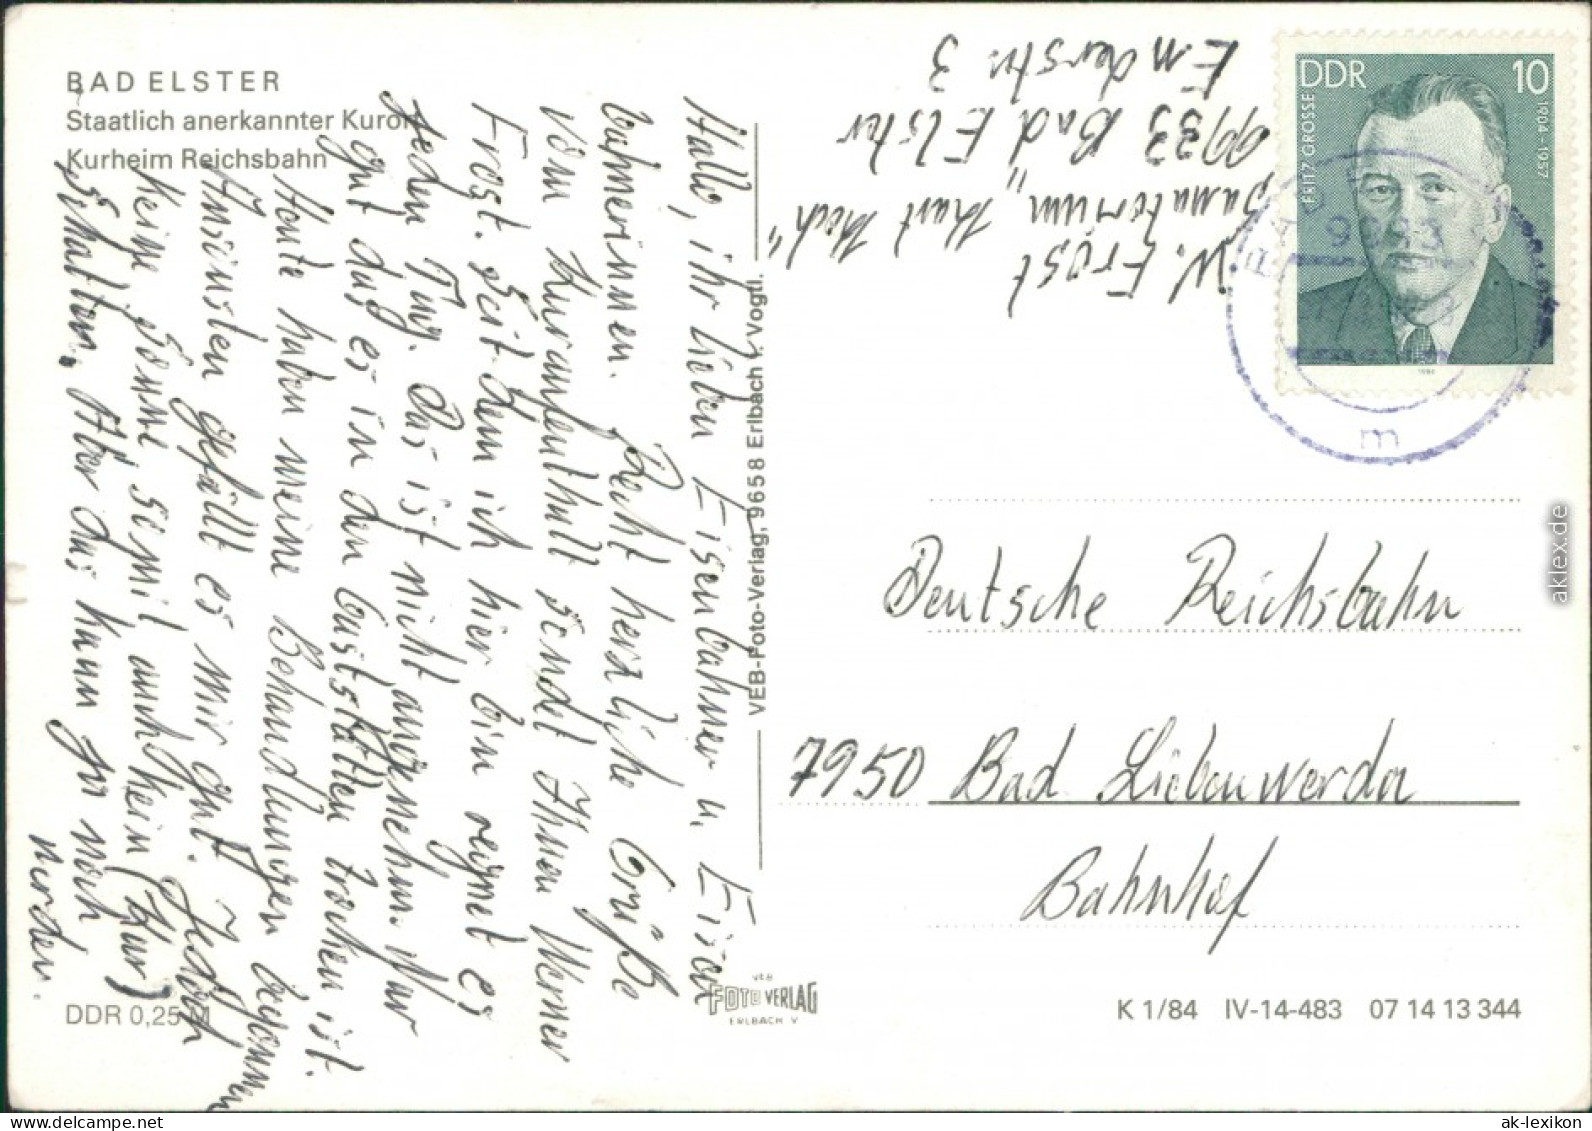 BAD ELSTER
Staatlich anerkannter Kurort
Kurheim Reichsbahn
Hallo, ihr lieben Eisenbahner u. Eisen
bahnerinnen. Recht herzliche Grüße
vom Kuraufenthalt sendet Ihnen Werner
Frost. Seit dem ich hier bin regnet es
jeden Tag. Das ist nicht angenehm. Nur
gut das es in den Gaststätten trocken ist.
Heute haben meine Behandlungen begonnen
Ansonsten gefällt es mir gut. Jedoch
keine Sonne, somit auch kein (Kur)
Schatten. Aber das kann ja noch
werden.
DDR 0,25 M
VEB-Foto-Verlag, 9658 Erlbach i. Vogtl.
VEB
FOTO VERLAG
ERLBACH V
W. Frost
Sanatorium „
9933 Bad Elster
Enderstr. 3
DDR 10
FRITZ GROSSE
1904-1957
m
Deutsche Reichsbahn
7950 Bad Liebenwerda
Bahnhof
K 1/84 IV-14-483 07 14 13 344
aklex.de
ak-lexikon